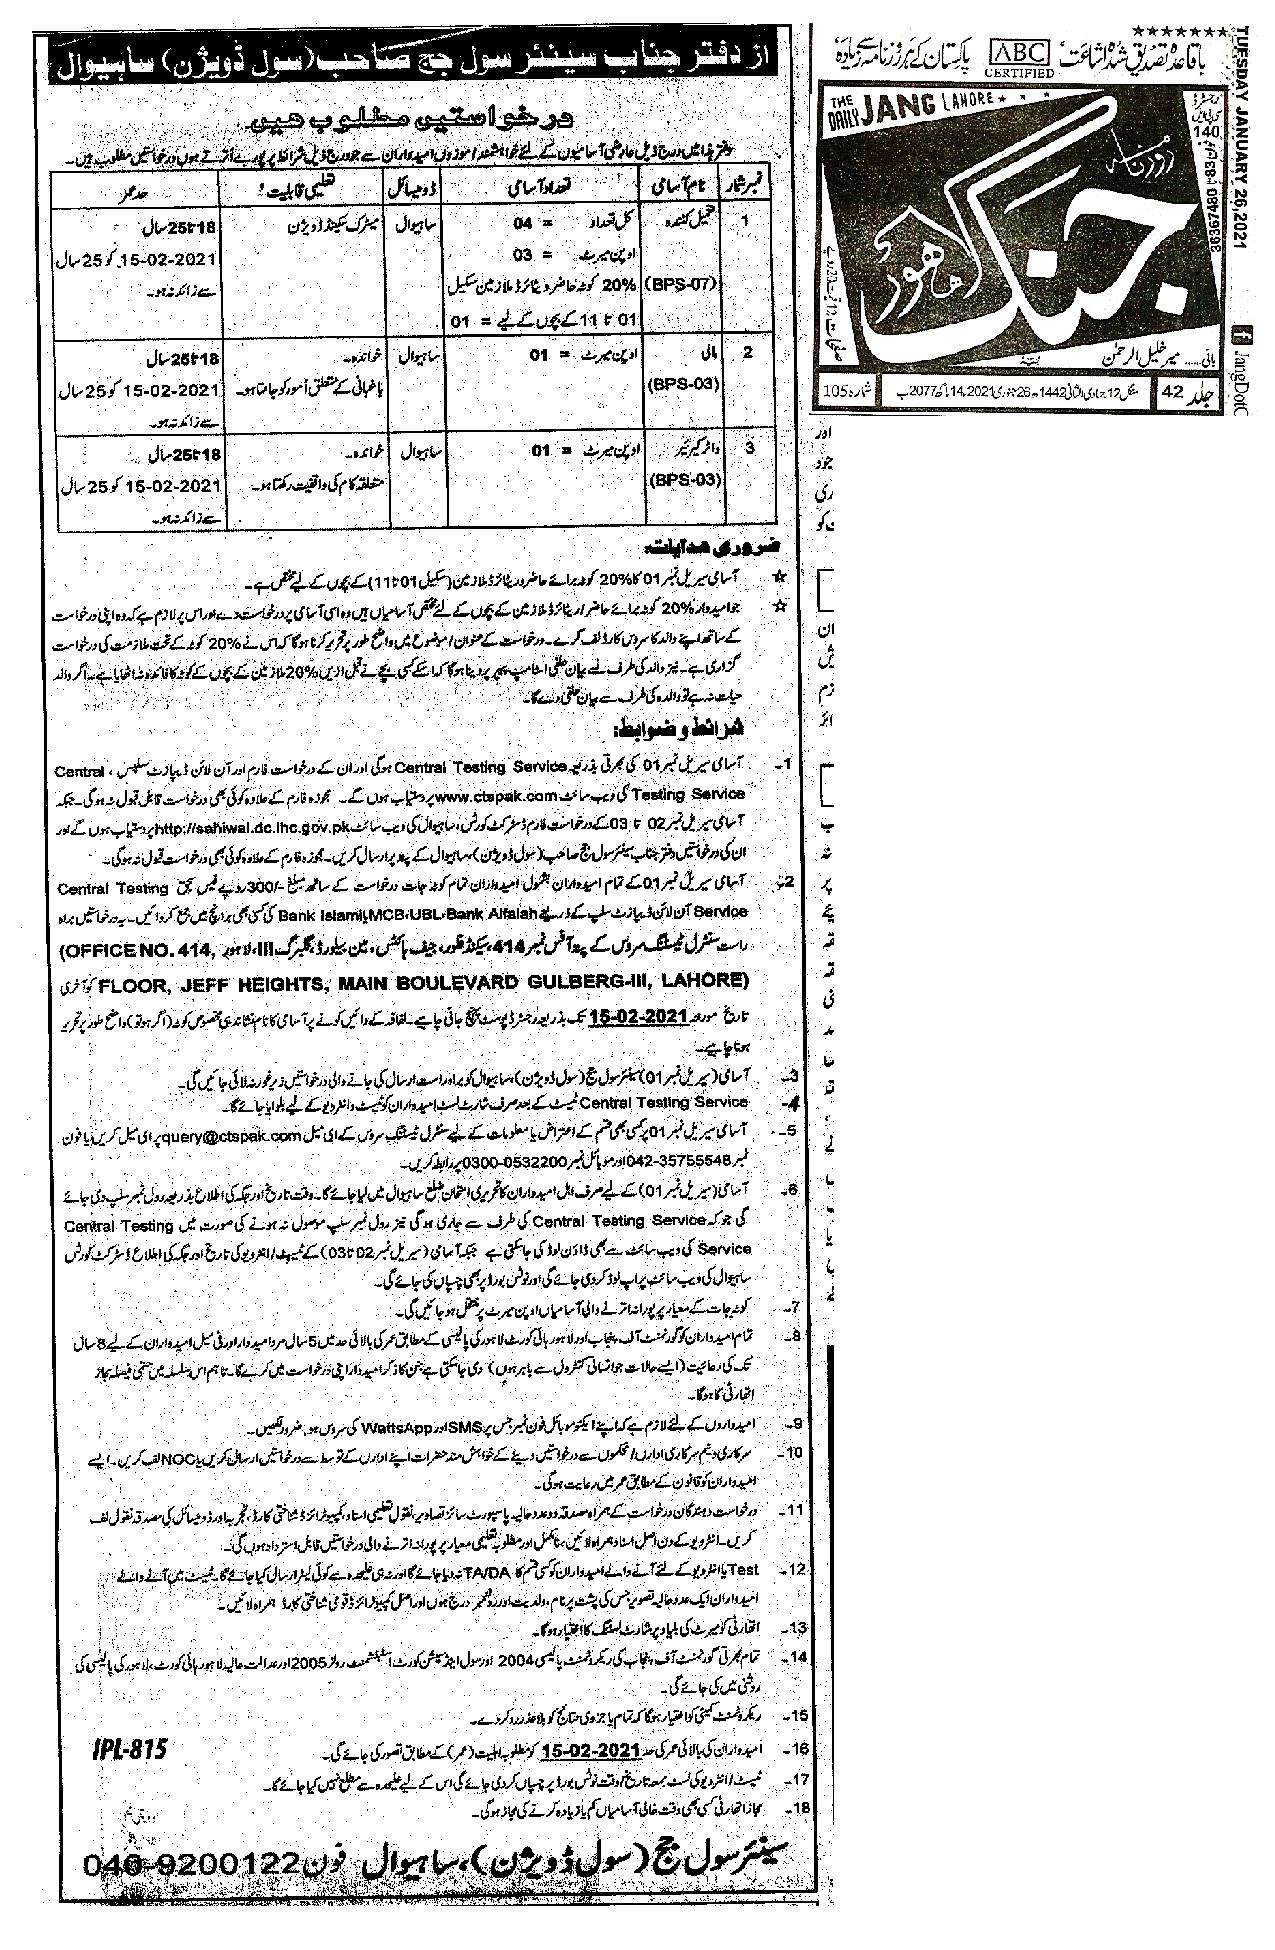 از دفتر جناب سینئر سول جج صاحب (سول ڈویژن) ساہیوال
درخواستیں مطلوب ہیں
دفتر ہذا میں درج ذیل عارضی آسامیوں کے لئے خواہشمند / موزوں امیدواران سے جو درج ذیل شرائط پر پورے اُترتے ہوں درخواستیں مطلوب ہیں۔
نمبر شمار نام آسامی تعداد آسامی ڈومیسائل تعلیمی قابلیت حد عمر
1 تعمیل کنندہ (BPS-07) کل تعداد = 04 ساہیوال میٹرک سیکنڈ ڈویژن 18 تا 25 سال
اوپن میرٹ = 03 15-02-2021 کو 25 سال
20% کوٹہ حاضر و ریٹائرڈ ملازمین سکیل سے زائد نہ ہو۔
01 تا 11 کے بچوں کے لیے = 01
2 مالی (BPS-03) اوپن میرٹ = 01 ساہیوال خواندہ۔ 18 تا 25 سال
باغبانی کے متعلق اُمور کو جانتا ہو۔ 15-02-2021 کو 25 سال
سے زائد نہ ہو۔
3 واٹر کیریئر (BPS-03) اوپن میرٹ = 01 ساہیوال خواندہ۔ 18 تا 25 سال
متعلقہ کام کی واقفیت رکھتا ہو۔ 15-02-2021 کو 25 سال
سے زائد نہ ہو۔
ضروری ہدایات:
☆ آسامی سیریل نمبر 01 کا 20% کوٹہ برائے حاضر و ریٹائرڈ ملازمین (سکیل 01 تا 11) کے بچوں کے لیے مختص ہے۔
☆ جو امیدوار 20% کوٹہ برائے حاضر / ریٹائرڈ ملازمین کے بچوں کے لئے مختص آسامیاں ہیں وہ اسی آسامی پر درخواست دے اور اس پر لازم ہے کہ وہ اپنی درخواست
کے ساتھ اپنے والد کا سروس کارڈ لف کرے۔ درخواست کے عنوان / موضوع میں واضح طور پر تحریر کرنا ہوگا کہ اس نے 20% کوٹہ کے تحت ملازمت کی درخواست
گزاری ہے۔ نیز والد کی طرف سے بیان حلفی اسٹامپ پیپر پر دینا ہوگا کہ اسکے کسی بچے نے قبل ازیں 20% ملازمین کے بچوں کے کوٹہ کا فائدہ نہ اٹھایا ہے۔ اگر والد
حیات نہ ہے تو والدہ کی طرف سے بیان حلفی دے گا۔
شرائط و ضوابط:
1۔ آسامی سیریل نمبر 01 کی بھرتی بذریعہ Central Testing Service ہوگی اور ان کے درخواست فارم اور آن لائن ڈیپازٹ سلپس، Central
Testing Service کی ویب سائٹ www.ctspak.com پر دستیاب ہوں گے۔ مجوزہ فارم کے علاوہ کوئی بھی درخواست قابل قبول نہ ہوگی۔ جبکہ
آسامی سیریل نمبر 02 تا 03 کے درخواست فارم ڈسٹرکٹ کورٹس، ساہیوال کی ویب سائٹ http://sahiwal.dc.lhc.gov.pk پر دستیاب ہوں گے اور
ان کی درخواستیں دفتر جناب سینئر سول جج صاحب (سول ڈویژن)، ساہیوال کے پتہ پر ارسال کریں۔ مجوزہ فارم کے علاوہ کوئی بھی درخواست قبول نہ ہوگی۔
2۔ آسامی سیریل نمبر 01 کے تمام امیدواران بشمول امیدواران تمام کوٹہ جات درخواست کے ساتھ مبلغ -/300 روپے فیس بحق Central Testing
Service آن لائن ڈیپازٹ سلپ کے ذریعے MCB، UBL، Bank Alfalah یا Bank Islami کی کسی بھی برانچ میں جمع کروائیں۔ یہ درخواستیں براہ
راست سنٹرل ٹیسٹنگ سروس کے پتہ آفس نمبر 414، سیکنڈ فلور، جیف ہائٹس، مین بلیوارڈ، گلبرگ III، لاہور (OFFICE NO. 414,
FLOOR, JEFF HEIGHTS, MAIN BOULEVARD GULBERG-III, LAHORE) کو آخری
تاریخ مورخہ 15-02-2021 تک بذریعہ رجسٹرڈ پوسٹ پہنچ جانی چاہیے۔ لفافہ کے دائیں کونے پر آسامی کا نام نشاندہی مخصوص کوٹہ (اگر ہو تو) واضح طور پر تحریر
ہونا چاہیے۔
3۔ آسامی (سیریل نمبر 01) سینئر سول جج (سول ڈویژن)، ساہیوال کو براہ راست ارسال کی جانے والی درخواستیں زیر غور نہ لائی جائیں گی۔
4۔ Central Testing Service ٹیسٹ کے بعد صرف شارٹ لسٹ امیدواران کو ٹیسٹ و انٹرویو کے لیے بلوایا جائے گا۔
5۔ آسامی سیریل نمبر 01 پر کسی بھی قسم کے اعتراض یا معلومات کے لیے سنٹرل ٹیسٹنگ سروس کے ای میل query@ctspak.com پر ای میل کریں یا فون
نمبر 042-35755548 اور موبائل نمبر 0300-0532200 پر رابطہ کریں۔
6۔ آسامی (سیریل نمبر 01) کے لیے صرف اہل امیدواران کا تحریری امتحان ضلع ساہیوال میں لیا جائے گا۔ وقت تاریخ اور جگہ کی اطلاع بذریعہ رول نمبر سلپ دی جائے
گی جو کہ Central Testing Service کی طرف سے جاری ہوگی نیز رول نمبر سلپ موصول نہ ہونے کی صورت میں Central Testing
Service کی ویب سائٹ سے بھی ڈاؤن لوڈ کی جاسکتی ہے جبکہ آسامی (سیریل نمبر 02 تا 03) کے ٹیسٹ / انٹرویو کی تاریخ اور جگہ کی اطلاع ڈسٹرکٹ کورٹس
ساہیوال کی ویب سائٹ پر اپ لوڈ کر دی جائے گی اور نوٹس بورڈ پر بھی چسپاں کی جائے گی۔
7۔ کوٹہ جات کے معیار پر پورا نہ اترنے والی آسامیاں اوپن میرٹ پر منتقل ہو جائیں گی۔
8۔ تمام امیدواران کو گورنمنٹ آف پنجاب اور لاہور ہائی کورٹ لاہور کی پالیسی کے مطابق عمر کی بالائی حد میں 5 سال مرد امیدوار اور فی میل امیدواران کے لیے 8 سال
تک کی رعایت (ایسے حالات جو انسانی کنٹرول سے باہر ہوں) دی جاسکتی ہے جن کا ذکر امیدوار اپنی درخواست میں کرے گا۔ تاہم اس سلسلہ میں حتمی فیصلہ مجاز
اتھارٹی کا ہوگا۔
9۔ امیدواروں کے لئے لازم ہے کہ اپنے ایکٹو موبائل فون نمبر جس پر SMS اور WattsApp کی سروس ہو، ضرور لکھیں۔
10۔ سرکاری و نیم سرکاری اداروں / محکموں سے درخواستیں دینے کے خواہش مند حضرات اپنے اداروں کے توسط سے درخواستیں ارسال کریں یا NOC لف کریں۔ ایسے
امیدواران کو قانون کے مطابق عمر میں رعایت ہوگی۔
11۔ درخواست دہندگان درخواست کے ہمراہ مصدقہ دو عدد حالیہ پاسپورٹ سائز تصاویر، نقول تعلیمی اسناد، کمپیوٹرائزڈ شناختی کارڈ، تجربہ اور ڈومیسائل کی مصدقہ نقول لف
کریں۔ انٹرویو کے دن اصل اسناد ہمراہ لائیں، نامکمل اور مطلوبہ تعلیمی معیار پر پورا نہ اترنے والی درخواستیں قابل استرداد ہوں گی۔
12۔ Test یا انٹرویو کے لئے آنے والے امیدواران کو کسی قسم کا TA/DA نہ دیا جائے گا اور نہ ہی علیحدہ سے کوئی لیٹر ارسال کیا جائے گا۔ ٹیسٹ میں آنے والے
امیدواران ایک عدد حالیہ تصویر جس کی پشت پر نام، ولدیت اور رول نمبر درج ہوں اور اصل کمپیوٹرائزڈ قومی شناختی کارڈ ہمراہ لائیں۔
13۔ اتھارٹی کو میرٹ کی بنیاد پر شارٹ لسٹنگ کا اختیار ہوگا۔
14۔ تمام بھرتی گورنمنٹ آف پنجاب کی ریکروٹمنٹ پالیسی 2004 اور سول اینڈ سیشن کورٹ اسٹیبلشمنٹ رولز 2005 اور عدالت عالیہ لاہور ہائی کورٹ، لاہور کی پالیسی کی
روشنی میں کی جائے گی۔
15۔ ریکروٹمنٹ کمیٹی کو اختیار ہوگا کہ تمام یا جزوی نتائج کو بلا عذر رد کر دے۔
16۔ امیدواران کی بالائی عمر کی حد 15-02-2021 کو مطلوبہ اہلیت (عمر) کے مطابق تصور کی جائے گی۔
17۔ ٹیسٹ / انٹرویو کی لسٹ بمعہ تاریخ / وقت نوٹس بورڈ پر چسپاں کر دی جائے گی اس کے لیے علیحدہ سے مطلع نہیں کیا جائے گا۔
18۔ مجاز اتھارٹی کسی بھی وقت خالی آسامیاں کم یا زیادہ کرنے کی مجاز ہوگی۔
IPL-815
سینئر سول جج (سول ڈویژن)، ساہیوال فون 040-9200122
باقاعدہ تصدیق شدہ اشاعت ABC CERTIFIED پاکستان کے ہر روزنامہ سے زیادہ
THE DAILY JANG LAHORE
روزنامہ
جنگ
لاہور
بانی ..... میر خلیل الرحمٰن
جلد 42 منگل 12 جمادی الثانی 1442ھ 26 جنوری 2021، 14 ماگھ 2077 ب شمارہ 105
TUESDAY JANUARY 26, 2021
JangDotC